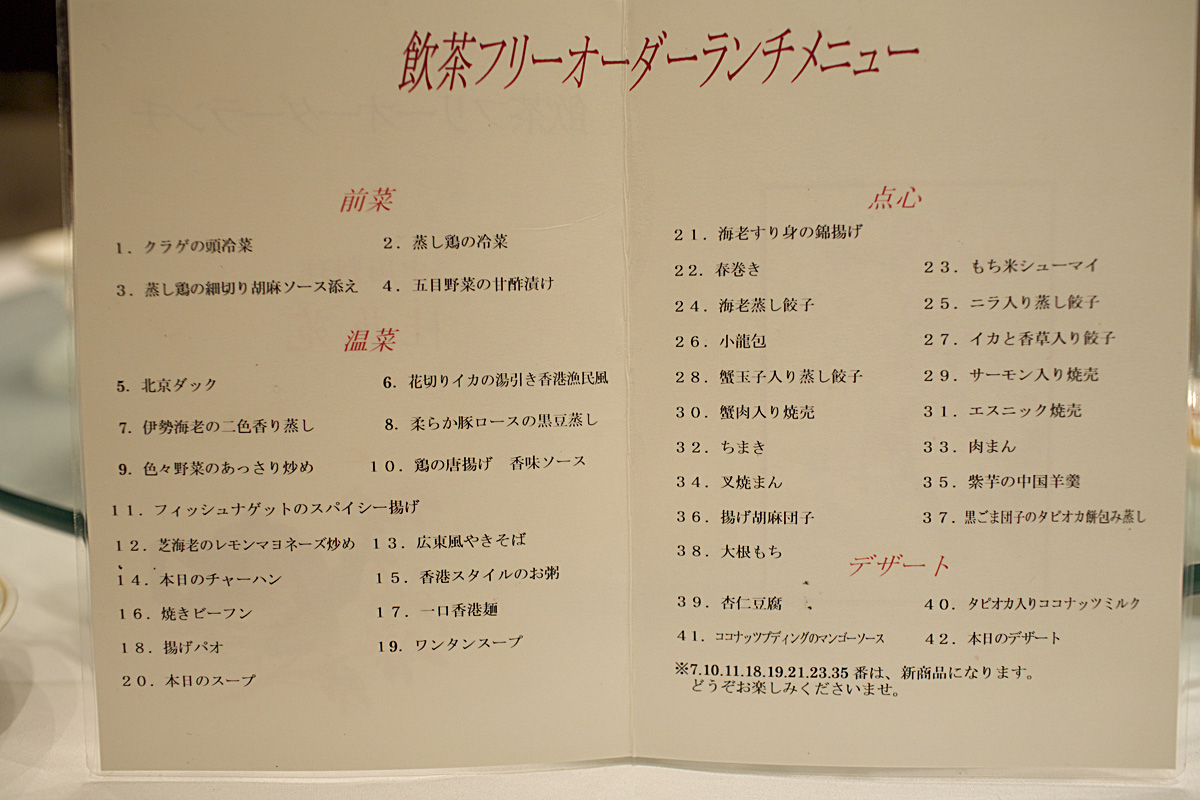 飲茶フリーオーダーランチメニュー
前菜
1．クラゲの頭冷菜　2．蒸し鶏の冷菜
3．蒸し鶏の細切り胡麻ソース添え　4．五目野菜の甘酢漬け
温菜
5．北京ダック　6．花切りイカの湯引き香港漁民風
7．伊勢海老の二色香り蒸し　8．柔らか豚ロースの黒豆蒸し
9．色々野菜のあっさり炒め　10．鶏の唐揚げ　香味ソース
11．フィッシュナゲットのスパイシー揚げ
12．芝海老のレモンマヨネーズ炒め　13．広東風やきそば
14．本日のチャーハン　15．香港スタイルのお粥
16．焼きビーフン　17．一口香港麺
18．揚げパオ　19．ワンタンスープ
20．本日のスープ
点心
21．海老すり身の錦揚げ
22．春巻き　23．もち米シューマイ
24．海老蒸し餃子　25．ニラ入り蒸し餃子
26．小龍包　27．イカと香草入り餃子
28．蟹玉子入り蒸し餃子　29．サーモン入り焼売
30．蟹肉入り焼売　31．エスニック焼売
32．ちまき　33．肉まん
34．叉焼まん　35．紫芋の中国羊羹
36．揚げ胡麻団子　37．黒ごま団子のタピオカ餅包み蒸し
38．大根もち
デザート
39．杏仁豆腐　40．タピオカ入りココナッツミルク
41．ココナッツプディングのマンゴーソース　42．本日のデザート
※7.10.11.18.19.21.23.35 番は、新商品になります。
どうぞお楽しみくださいませ。